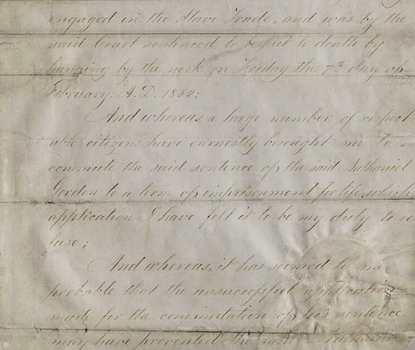 engaged in the Slave Trade, and was by the
said Court sentenced to be put to death by
hanging by the neck on Friday the 7th day of
February, A. D. 1862;
And whereas, a large number of respect
able citizens have earnestly besought me to
commute the said sentence of the said Nathaniel
Gordon to a term of imprisonment for life, which
application I have felt it to be my duty to re
fuse;
And whereas, it has seemed to me
probable that the unsuccessful application
made for the commutation of his sentence
may have prevented the said